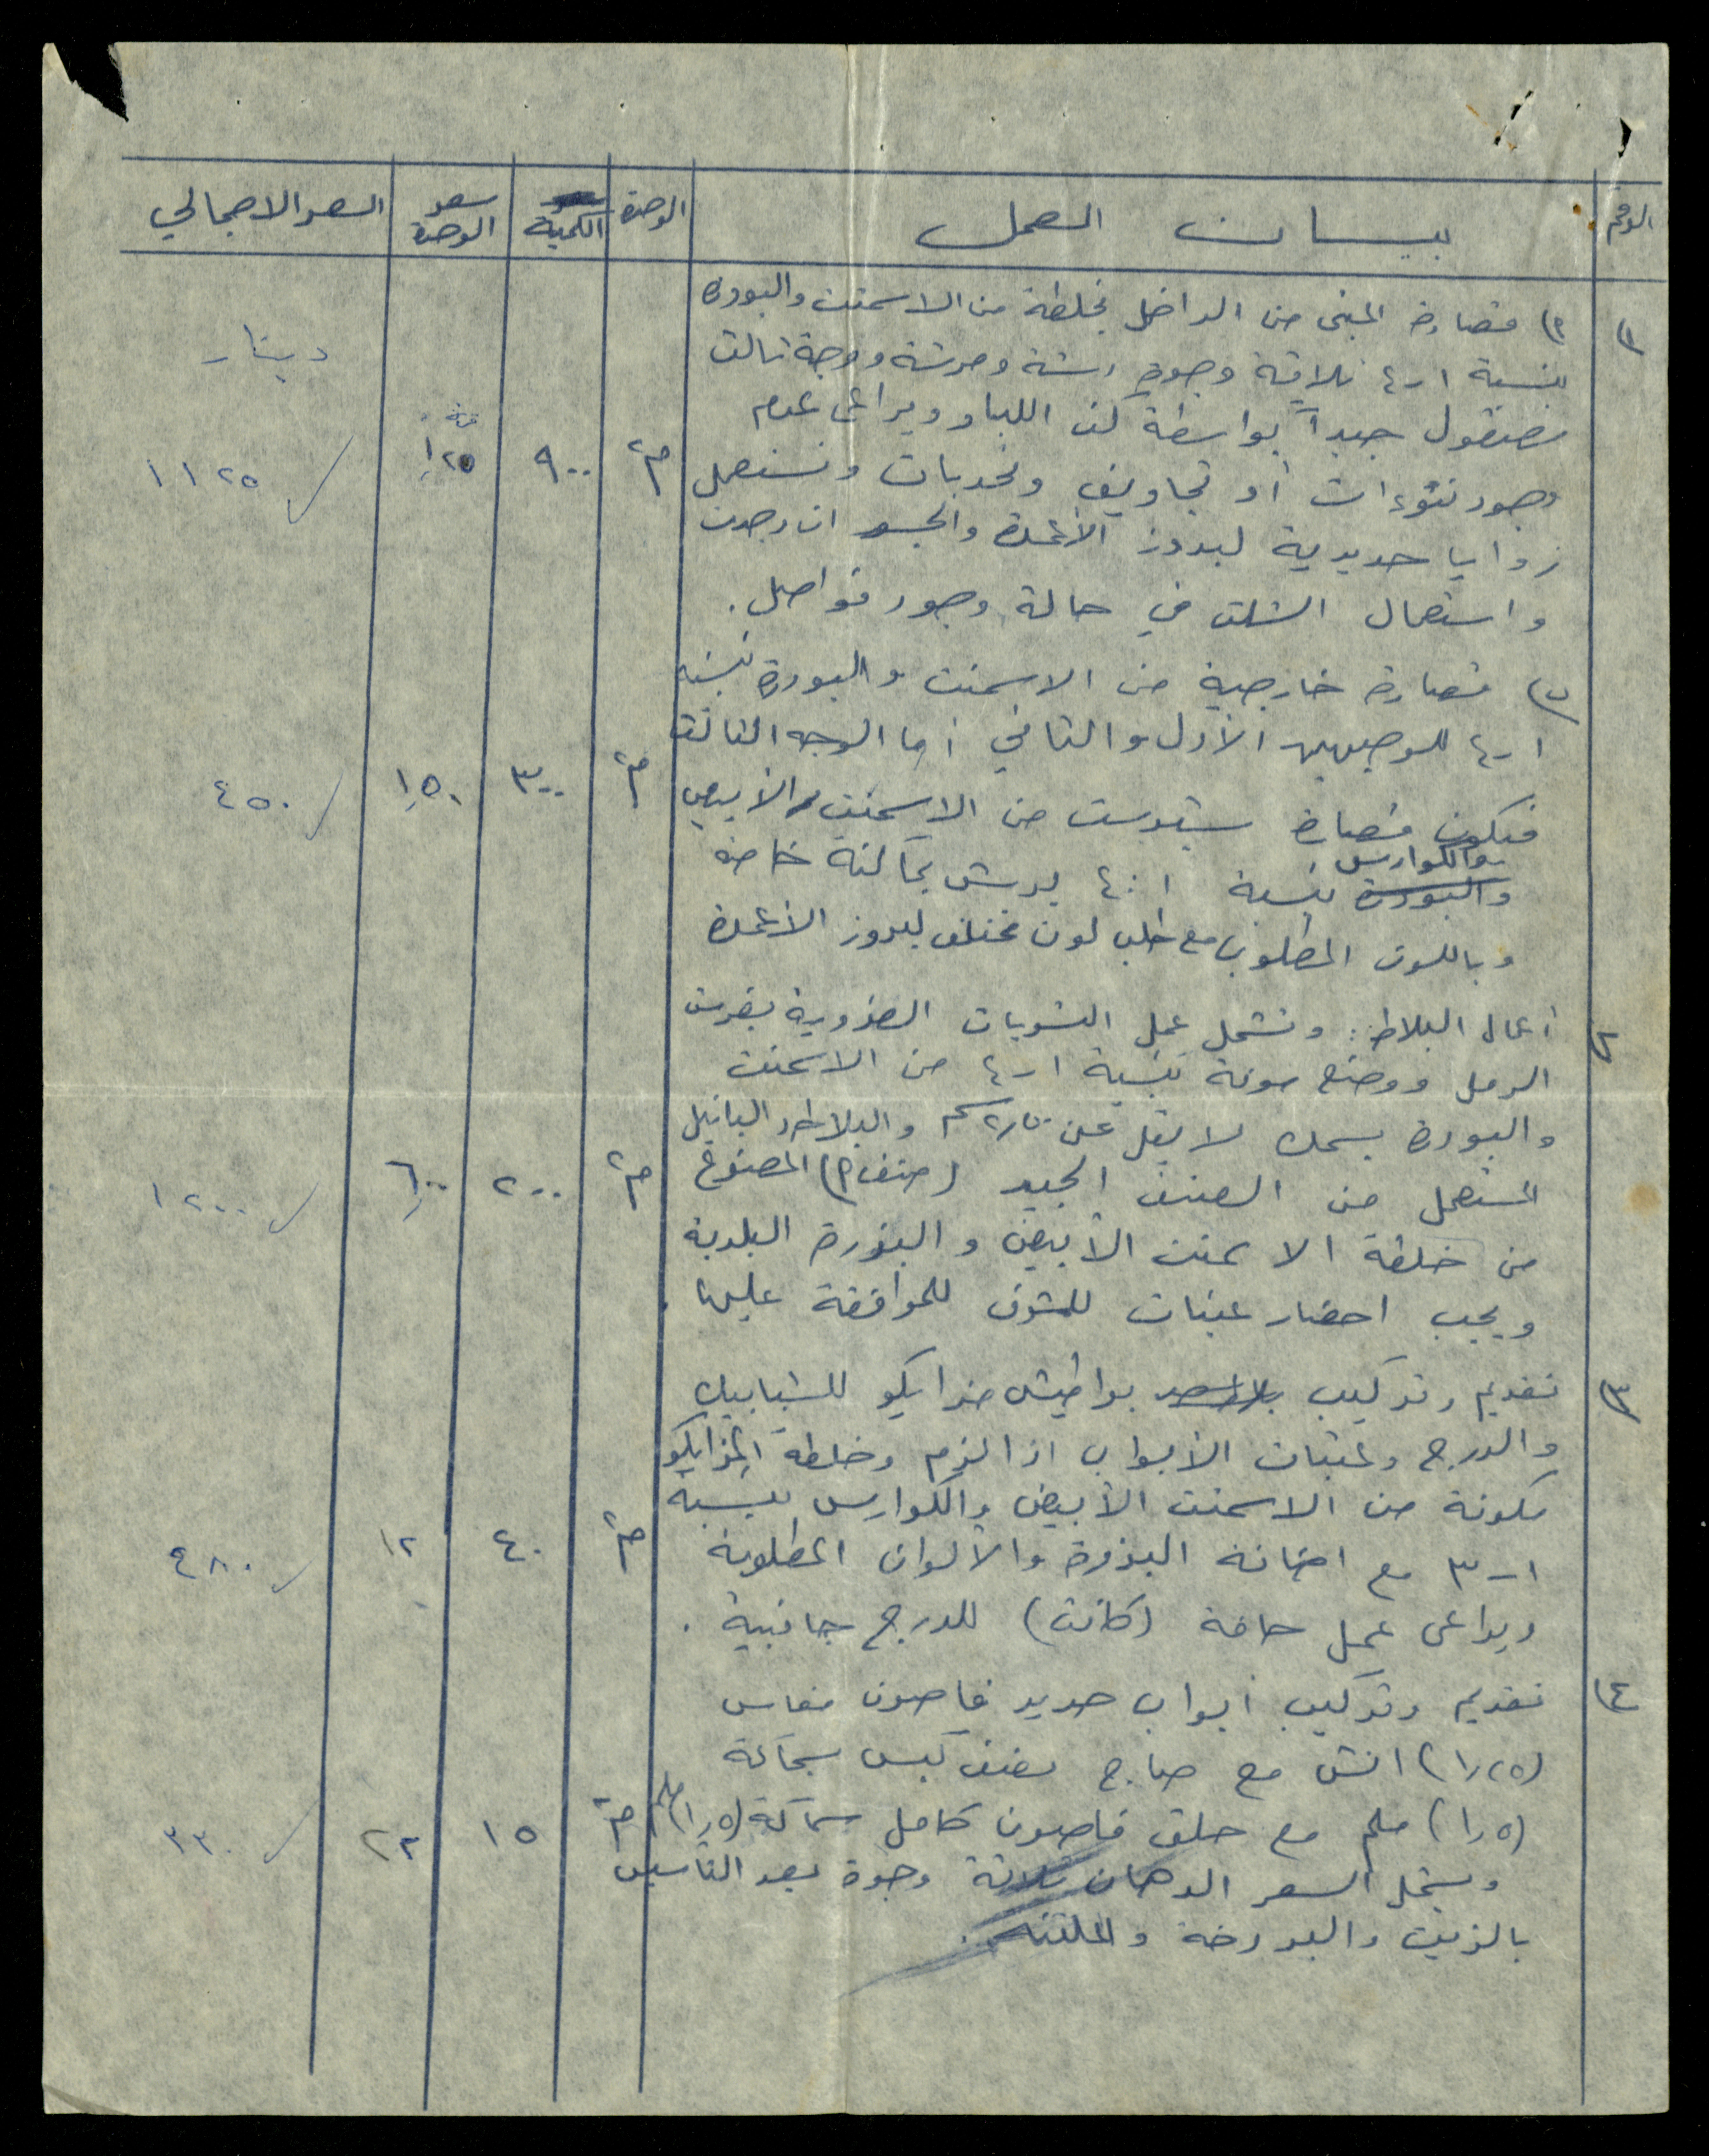 الرقم بيـــان العمل الوحدة الكمية سعر الوحدة السعر الاجمالي
دينار
١) أ) قصارة المبنى من الداخل بخلطة من الاسمنت والبودرة
بنسبة ١-٤ ثلاثة وجوه رشة ومرشة ووجه ثالث
مصقول جيداً بواسطة كف اللباد ويراعى عدم
وجود نتوءات أو تجاويف وتحدبات وتستعمل م٢ ٩٠٠ ١,٢٥ ١١٢٥
زوايا حديدية لبروز الأعمدة والجسر ان وجدت
واستعمال الشلت في حالة وجود فواصل.
ب) قصارة خارجية من الاسمنت والبودرة بنسبة
١-٤ للوجهين الأول والثاني أما الوجه الثالث
فيكون قصارة من الاسمنت الأبيض م٢ ٣٠٠ ١,٥٠ ٤٥٠
والكوارس
والبودرة بنسبة ١:٤ يرش بماكنة خاصة
وباللون المطلوب مع طلب لون مختلف لبروز الأعمدة
٢) أعمال البلاط: وتشمل عمل التسويات الضرورية بفرش
الرمل ووضع مونة بنسبة ١-٤ من الاسمنت
والبودرة بسمك لا يقل عن ٢,٥٠ سم والبلاط والبانيل
المستعمل من الصنف الجيد (صنف أ) المصنوع م٢ ٢٠٠ ٦,٠٠ ١٢٠٠
من خلطة الاسمنت الأبيض والبذورة البلدية
ويجب احضار عينات للموافقة عليها.
٣) تقديم وتركيب براطيش مزايكو للشبابيك
والدرج وعتبات الأبواب اذا لزم وخلطة المزايكو
مكونة من الاسمنت الأبيض والكوارس بنسبة
١-٣ مع اضافة البذورة والألوان المطلوبة م٢ ٤٠ ١٢ ٤٨٠
ويراعى عمل حافة (كانت) للدرج جانبية.
٤) تقديم وتركيب أبواب حديد فاصون مقاس
(١,٢٥) انش مع صاج نصف كبس سماكة
(١,٥) ملم مع حلق فاصون كامل سماكة (١,٥) ملم م٢ ١٥ ٢٢ ٣٣٠
ويشمل السعر الدهان ثلاثة وجوه بعد التأسيس
بالزيت والبردخة